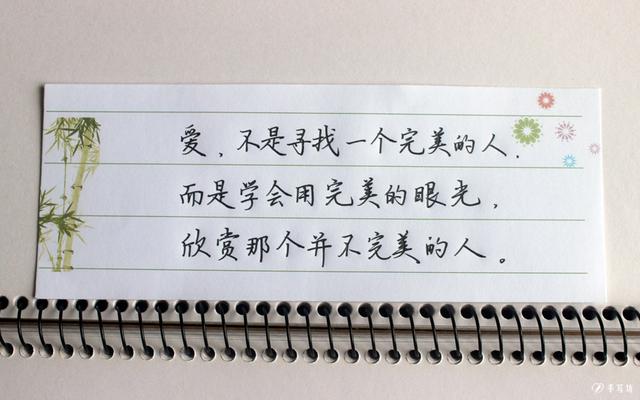 爱，不是寻找一个完美的人，
而是学会用完美的眼光，
欣赏那个并不完美的人。
手写坊